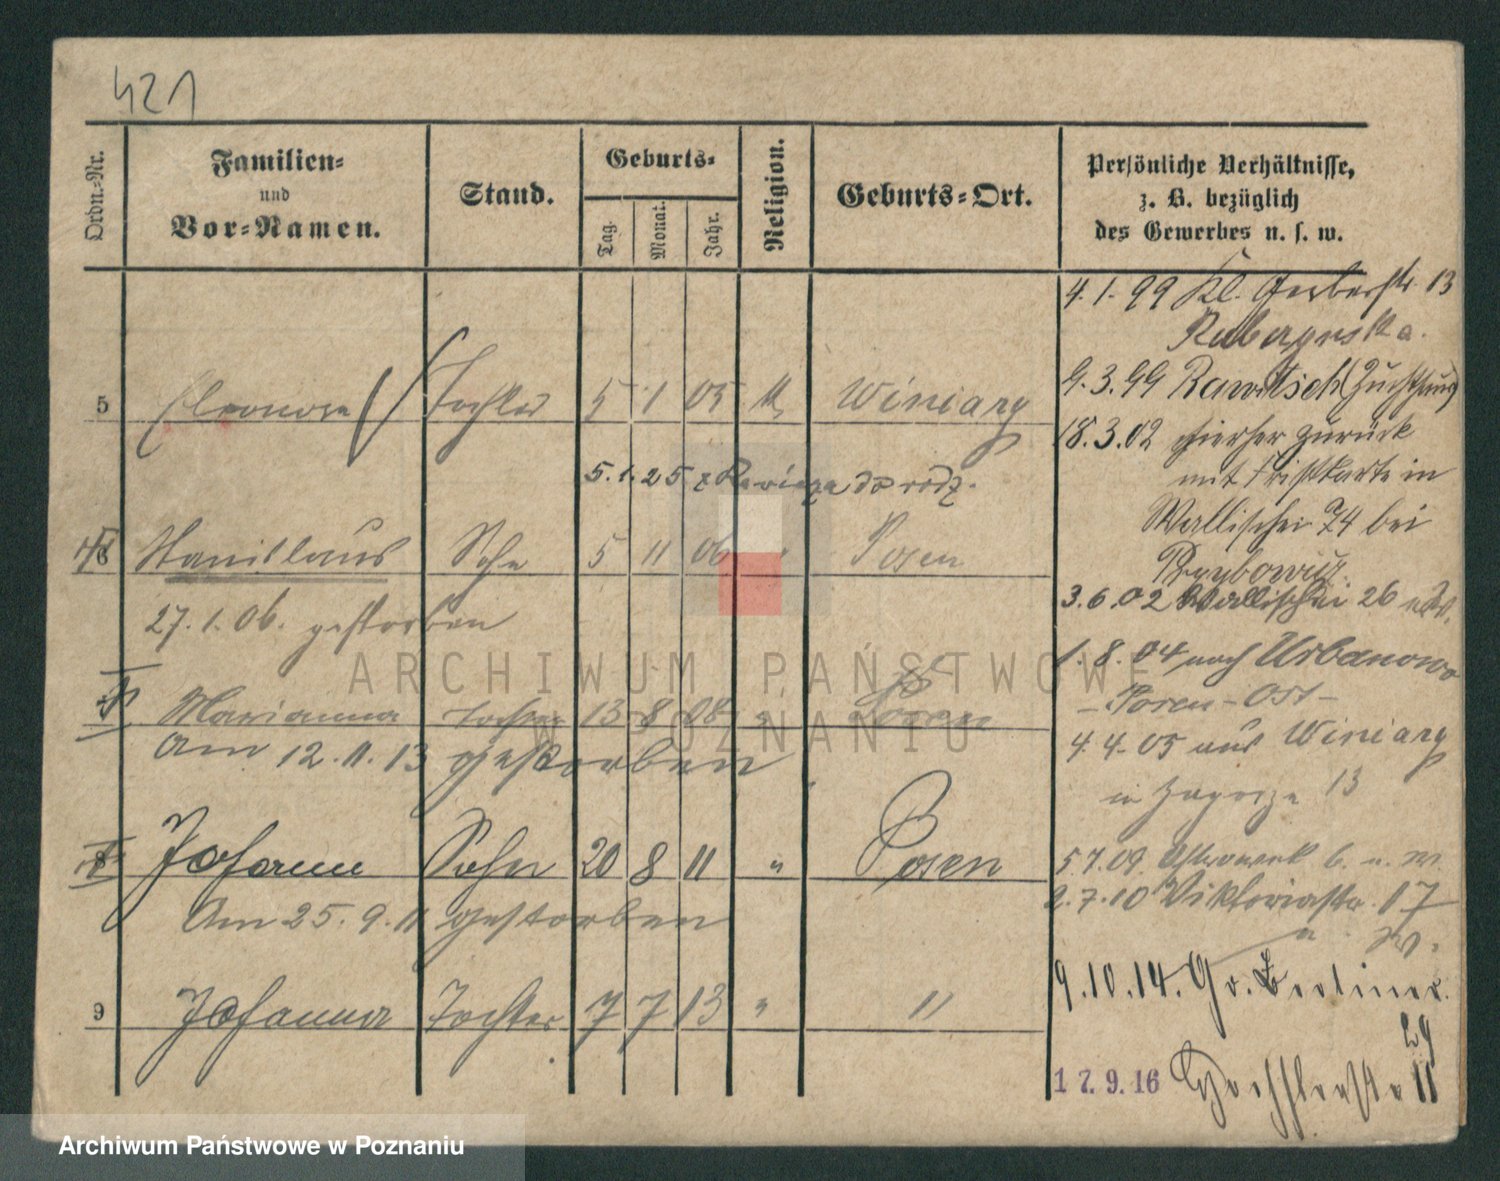 421
Ordn.-Nr.
Familien-
und
Vor-Namen.
Stand.
Geburts-
Tag.
Monat.
Jahr.
Religion.
Geburts-Ort.
Persönliche Verhältnisse,
z. B. bezüglich
des Gewerbes u. s. w.
4.1.99 Kl. Gerberstr. 13
9.3.99 Rawitsch (Zuchthaus)
5 Eleonora Tochter 5 1 05 k Winiary
18.3.02 hierher zurück
mit Fristkarte in
5.1.25 z Rawicza do rodz.
Wallischei 74 bei
6 Stanislaus Sohn 5 11 06 " Posen
3.6.02 Wallischei 26
27.1.06. gestorben
1.8.04 nach Urbanowo
- Posen-Ost -
7 Marianna Tochter 13 8 08 " Posen
4.4.05 aus Winiary
am 12.11.13 gestorben
in Zagorze 13
8 Johann Sohn 20 8 11 " Posen
5.7.09
2.7.10 Viktoriastr. 17
Am 25.9.11 gestorben
9.10.14. Gr. Berliner
29
9 Johanna Tochter 7 7 13 " "
17.9.16 11
ARCHIWUM PAŃSTWOWE
W POZNANIU
Archiwum Państwowe w Poznaniu